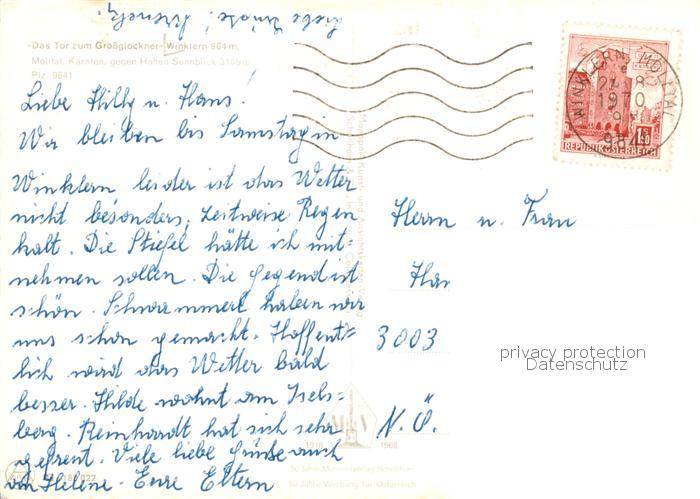 Liebe Grüße!
-Das Tor zum Großglockner- Winklern 964 m,
Mölltal, Kärnten, gegen Hohen Sonnblick 3105 m
Plz. 9841
Liebe Hilly u. Hans!
Wir bleiben bis Samstag in
Winklern leider ist das Wetter
nicht besonders, zeitweise Regen
kalt. Die Stiefel hätte ich mit-
nehmen sollen. Die Gegend ist
schön. Schwammerl haben wir
uns schon gemacht. Hoffent=
lich wird das Wetter bald
besser. Hilde wohnt am Isels=
berg. Reinhardt hat sich sehr
gefreut. Viele liebe Grüße auch
an Helene. Eure Eltern
WINKLERN, MÖLLTAL
1970
984
1.50
REPUBLIK ÖSTERREICH
Herrn u. Frau
Han
3003
N.Ö.
privacy protection
Datenschutz
1918 1968
50 Jahre Werbung für Österreich